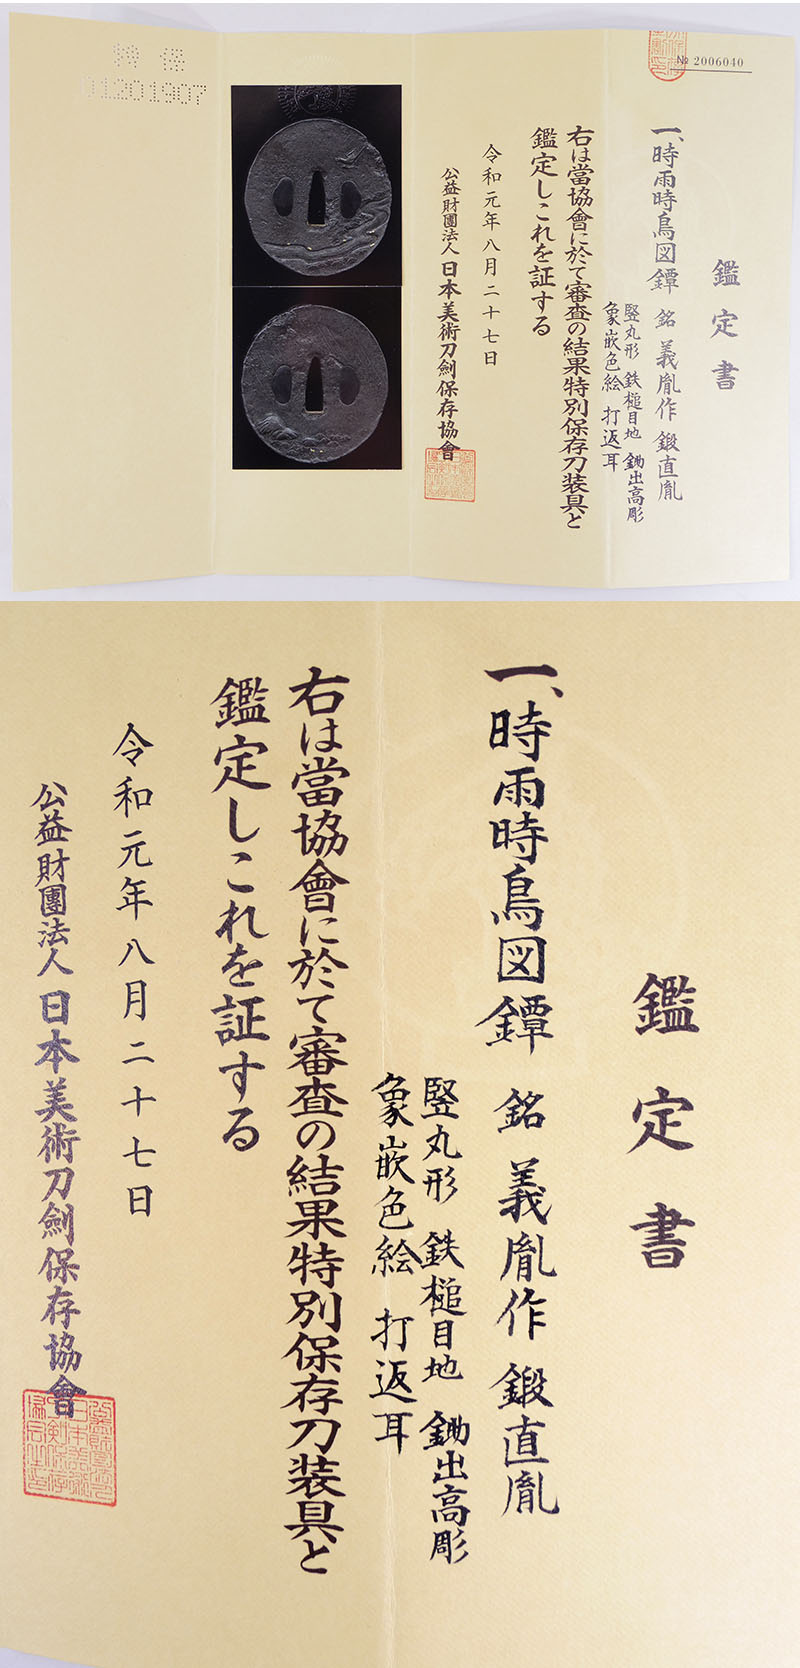 № 2006040
鑑定書
一、時雨時鳥図鐔 銘 義胤作 鍛直胤
竪丸形 鉄槌目地 鋤出高彫
象嵌色絵 打返耳
右は當協會に於て審査の結果特別保存刀装具と
鑑定しこれを証する
令和元年八月二十七日
公益財團法人 日本美術刀劍保存協會
特保
01201907
鑑定書
一、時雨時鳥図鐔 銘 義胤作 鍛直胤
竪丸形 鉄槌目地 鋤出高彫
象嵌色絵 打返耳
右は當協會に於て審査の結果特別保存刀装具と
鑑定しこれを証する
令和元年八月二十七日
公益財團法人 日本美術刀劍保存協會